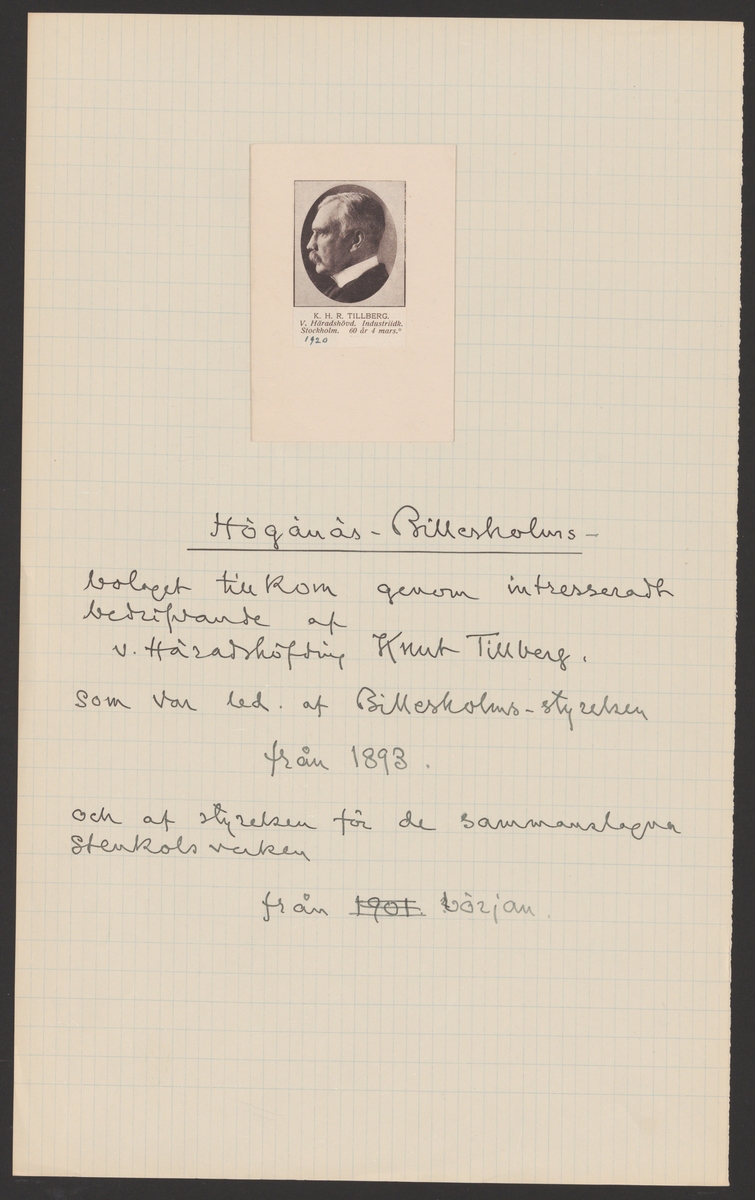 K. H. R. TILLBERG.
V. Häradshövd. Industriidk.
Stockholm. 60 år 4 mars.
1920
Högänäs - Billesholms -
bolaget tillkom genom intresseradt
bedrifvande af
v. Häradshöfding Knut Tillberg.
som var led. af Billesholms-styrelsen
från 1893.
och af styrelsen för de sammanslagna
Stenkolsverken
från 1901. början.